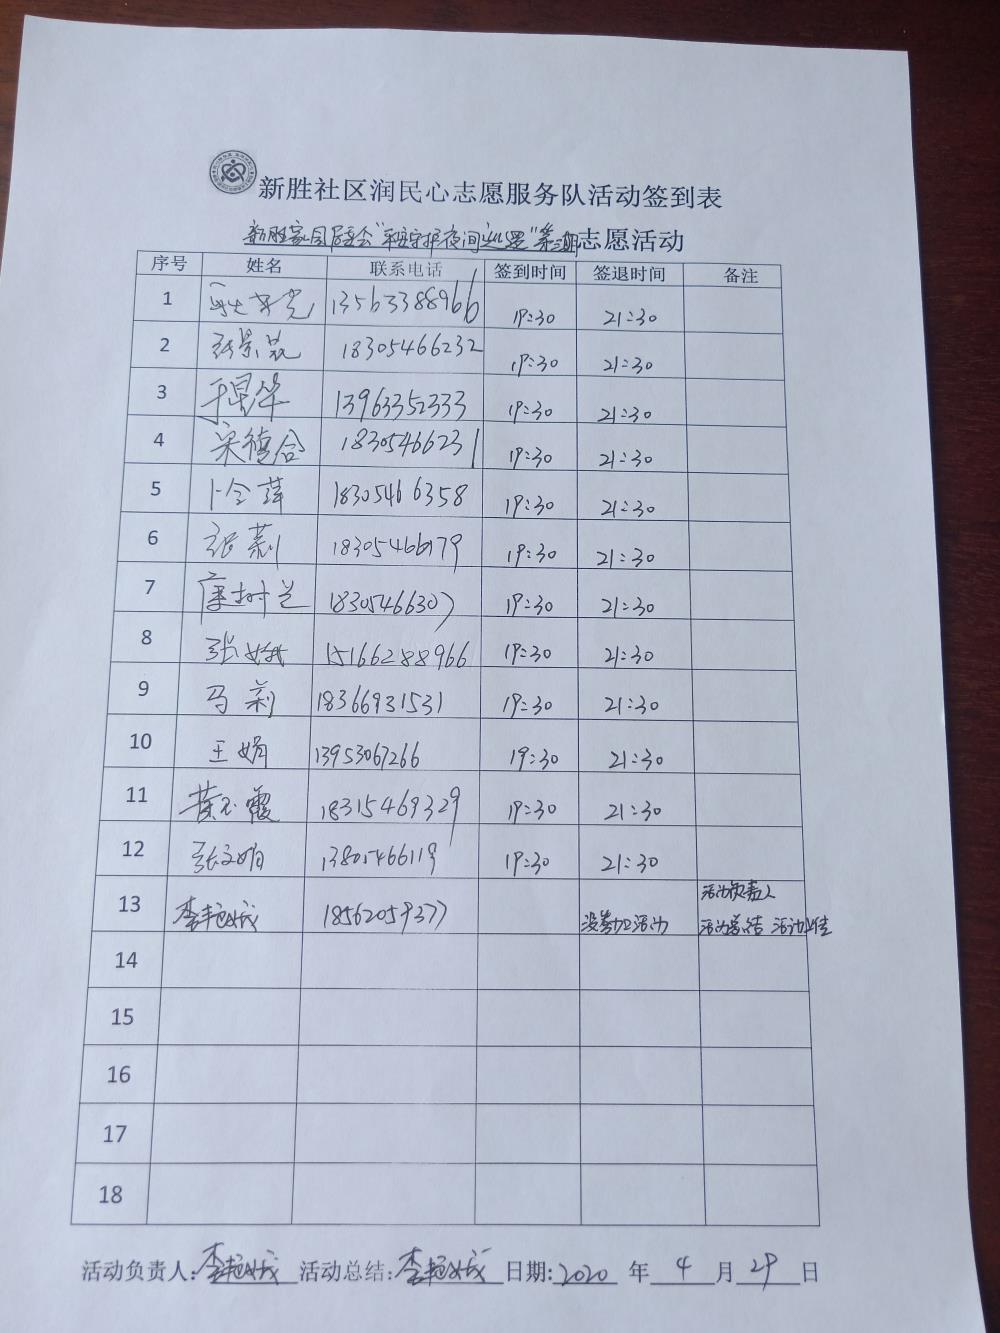 新胜社区润民心志愿服务队活动签到表
新胜家园居委会"平安守护夜间巡逻"第三期志愿活动
序号 姓名 联系电话 签到时间 签退时间 备注
1 13563388966 19:30 21:30
2 张景花 18305466232 19:30 21:30
3 于星华 13963352333 19:30 21:30
4 宋德合 18305466231 19:30 21:30
5 卜令萍 18305466358 19:30 21:30
6 张莉 18305466179 19:30 21:30
7 康树兰 18305466307 19:30 21:30
8 张 15166288966 19:30 21:30
9 马莉 18366931531 19:30 21:30
10 王娟 13953067266 19:30 21:30
11 黄玉霞 18315469329 19:30 21:30
12 张文娟 13805466119 19:30 21:30
13 李艳娥 18562059377 没参加活动 活动负责人
活动总结 活动上传
14
15
16
17
18
活动负责人:李艳娥 活动总结:李艳娥 日期:2020 年 4 月 29 日